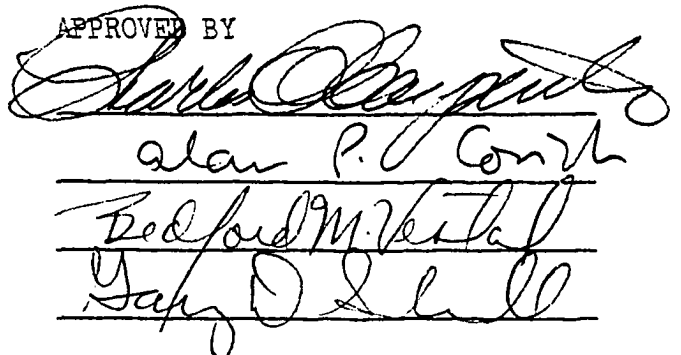 APPROVED BY
Charles C Carpenter
Alan P. Covich
Bedford M. Vestal
Gary D Schnell